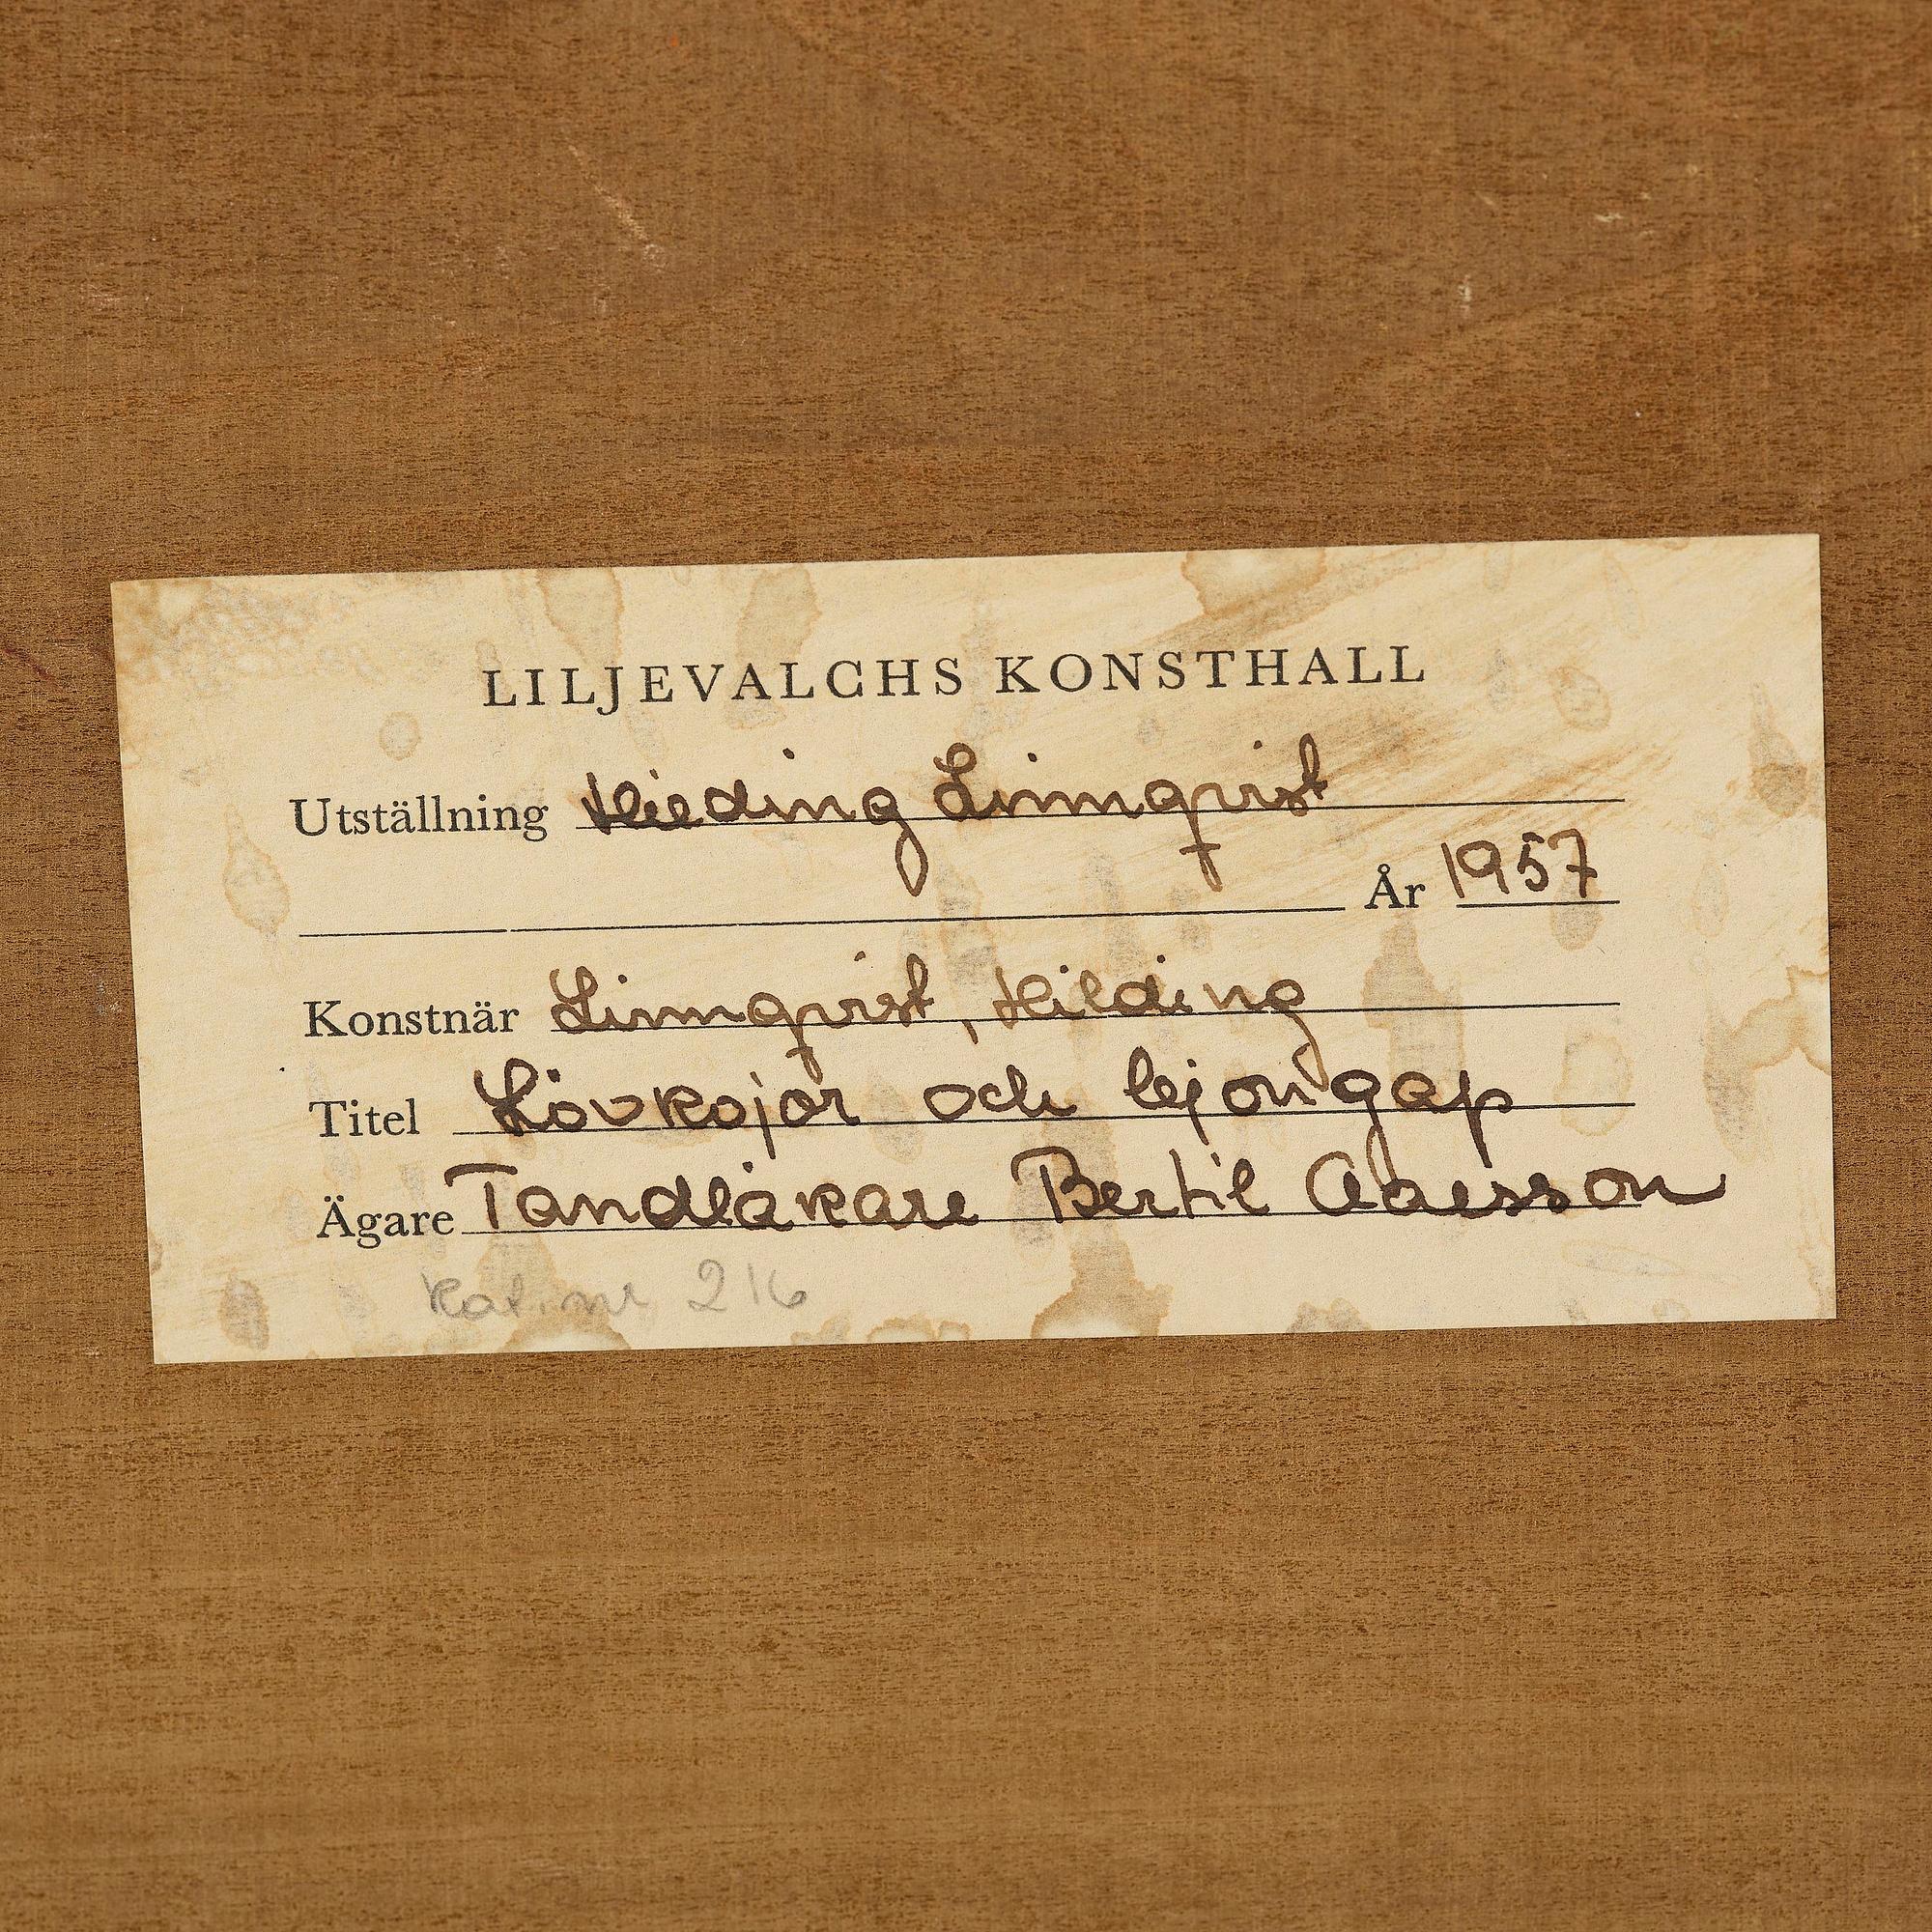 LILJEVALCHS KONSTHALL
Utställning Hilding Linnqvist
År 1957
Konstnär Linnqvist, Hilding
Titel Lövkojor och lejongap
Ägare Tandläkare Bertil
Kat. nr 216